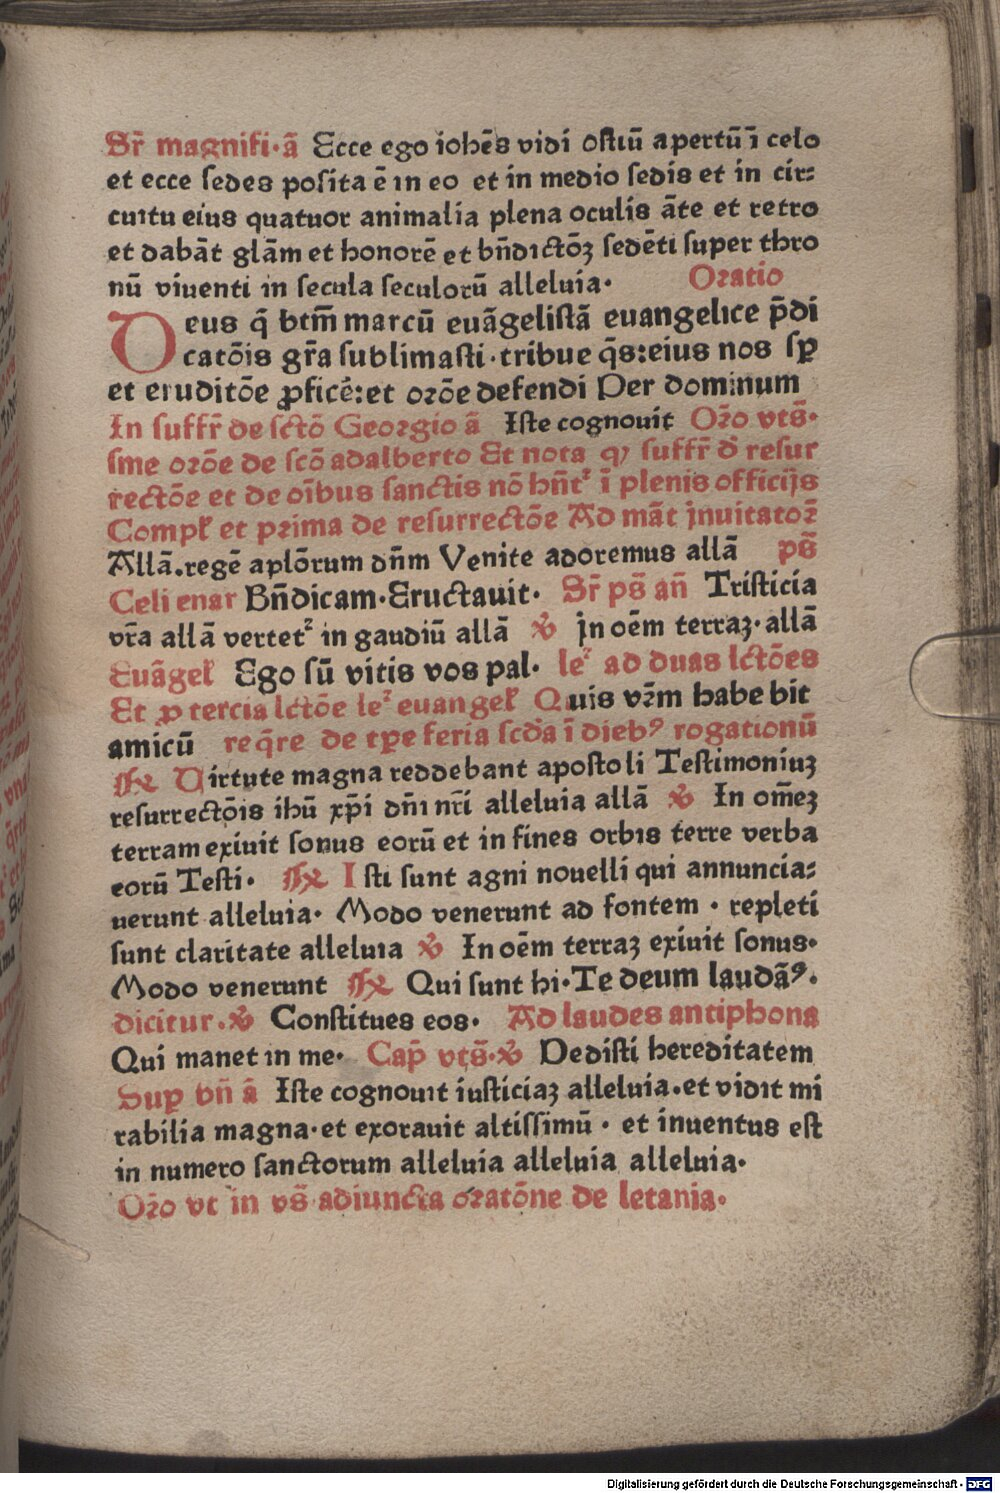 Sr̄ magnifi·ā Ecce ego iohēs vidi ostiū apertū ī celo
et ecce sedes posita ē in eo et in medio sedis et in cir⸗
cuitu eius quatuor animalia plena oculis āte et retro
et dabāt glām et honorē et bn̄dictōꝫ sedēti super thro
nū viuenti in secula seculorū alleluia· Oratio
Deus q̄ btm̄ marcū euāgelistā euangelice p̄di
catōis gr̄a sublimasti·tribue q̄s:eius nos sꝑ
et eruditōe ꝓficē:et orōe defendi Per dominum
In suffr̄ de sctō Georgio ā Iste cognouit Or̄o vts̄·
sme orōe de scō adalberto Et nota ꝙ suffr̄ d̄ resur
rectōe et de oībus sanctis nō hn̄t᷑ ī plenis officijs
Compl̄ et prima de resurrectōe Ad māt jnuitator̄
Allā.regē aplōrum dn̄m Venite adoremus allā ps̄
Celi enar Bn̄dicam·Eructauit· Sr̄ ps̄ an̄ Tristicia
vr̄a allā vertet᷑ in gaudiū allā ℣ jn oēm terraꝫ·allā
Euāgel̄ Ego sū vitis vos pal· le᷑ ad duas lctōes
Et ꝓ tercia lctōe le᷑ euangel̄ Quis vr̄m habebit
amicū req̄re de tꝑe feria scd̄a ī dieb⁹ rogationū
℟ Virtute magna reddebant apostoli Testimoniuꝫ
resurrectōis ihū xp̄i dn̄i nr̄i alleluia allā ℣ In om̄eꝫ
terram exiuit sonus eorū et in fines orbis terre verba
eorū Testi· ℟ Isti sunt agni nouelli qui annuncia⸗
uerunt alleluia· Modo venerunt ad fontem · repleti
sunt claritate alleluia ℣ In oēm terraꝫ exiuit sonus·
Modo venerunt ℟ Qui sunt hi·Te deum laudā⁹.
dicitur.℣ Constitues eos· Ad laudes antiphona
Qui manet in me· Cap̄ vts̄·℣ Dedisti hereditatem
Suꝑ bn̄ ā Iste cognouit iusticiaꝫ alleluia.et vidit mi
rabilia magna·et exorauit altissimū · et inuentus est
in numero sanctorum alleluia alleluia alleluia·
Or̄o vt in vs̄ adiuncta oratōne de letania·
Digitalisierung gefördert durch die Deutsche Forschungsgemeinschaft - DFG